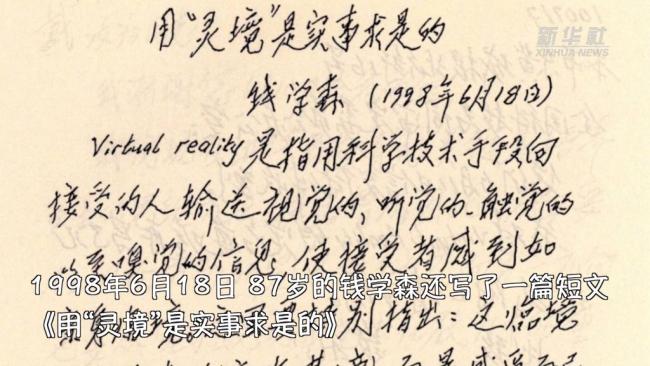 用“灵境”是实事求是的
新华社
XINHUA NEWS
钱学森（1998年6月18日）
Virtual reality是指用科学技术手段向
接受的人输送视觉的、听觉的、触觉的
以至嗅觉的信息，使接受者感到如
1998年6月18日 87岁的钱学森还写了一篇短文
指出：这临境
《用“灵境”是实事求是的》